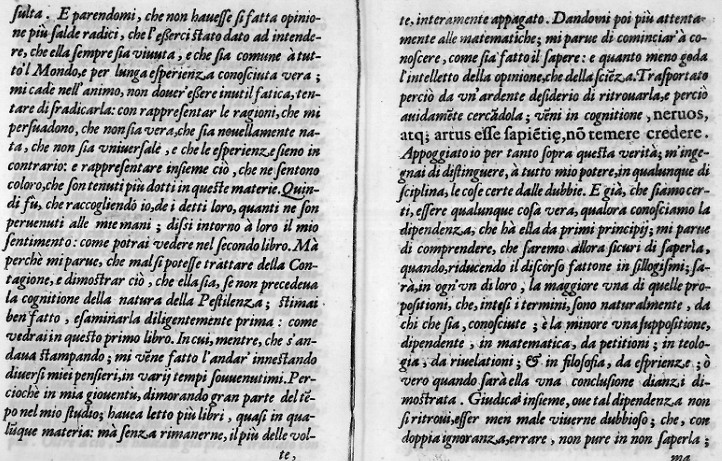 sulta. E parendomi, che non hauesse sì fatta opinio-
ne più salde radici, che l'esserci stato dato ad intende-
re, che ella sempre sia viuuta, e che sia comune à tut-
to'l Mondo, e per lunga esperienza conosciuta vera;
mi cade nell'animo, non douer'essere inutil fatica, ten-
tare di sradicarla: con rappresentar le ragioni, che mi
persuadono, che non sia vera, che sia nouellamente na-
ta, che non sia vniuersale, e che le esperienze sieno in
contrario: e rappresentare insieme ciò, che ne sentono
coloro, che son tenuti più dotti in queste materie. Quin-
di fù, che raccogliendo io, de i detti loro, quanti ne son
peruenuti alle mie mani; dissi intorno à loro il mio
sentimento: come potrai vedere nel secondo libro. Mà
perchè mi parue, che mal si potesse trattare della Con-
tagione, e dimostrar ciò, che ella sia, se non precedeua
la cognitione della natura della Pestilenza; stimai
ben fatto, esaminarla diligentemente prima: come
vedrai in questo primo libro. In cui, mentre, che s'an-
daua stampando; mi vēne fatto l'andar' innestando
diuersi miei pensieri, in varij tempi souuenutimi. Per-
ciochè in mia giouentu, dimorando gran parte del tē-
po nel mio studio; hauea letto più libri, quasi in qua-
lūque materia: mà senza rimanerne, il più delle vol-
te,
te, interamente appagato. Dandomi poi più attenta-
mente alle matematiche; mi parue di cominciar' à co-
noscere, come sia fatto il sapere: e quanto meno goda
l'intelletto della opinione, che della sciēza. Trasportato
perciò da vn'ardente desiderio di ritrouarla, e perciò
auidamēte cercādola; vēni in cognitione, neruos,
atq; artus esse sapiētię, nō temere credere.
Appoggiato io per tanto sopra questa verità; m'inge-
gnai di distinguere, à tutto mio potere, in qualunque di
sciplina, le cose certe dalle dubbie. E già, che siamo cer-
ti, essere qualunque cosa vera, qualora conosciamo la
dipendenza, che hà ella da primi principij; mi parue
di comprendere, che saremo allora sicuri di saperla,
quando, riducendo il discorso fattone in sillogismi; sa-
rà, in ogn'vn di loro, la maggiore vna di quelle pro-
positioni, che, intesi i termini, sono naturalmente, da
chi che sia, conosciute; è la minore vna suppositione,
dipendente, in matematica, da petitioni; in teolo-
gia, da riuelationi; & in filosofia, da esprienze; ò
vero quando sarà ella vna conclusione dianzi di-
mostrata. Giudicai insieme, oue tal dependenza non
si ritroui, esser men male viuerne dubbioso; che, con
doppia ignoranza, errare, non pure in non saperla;
ma